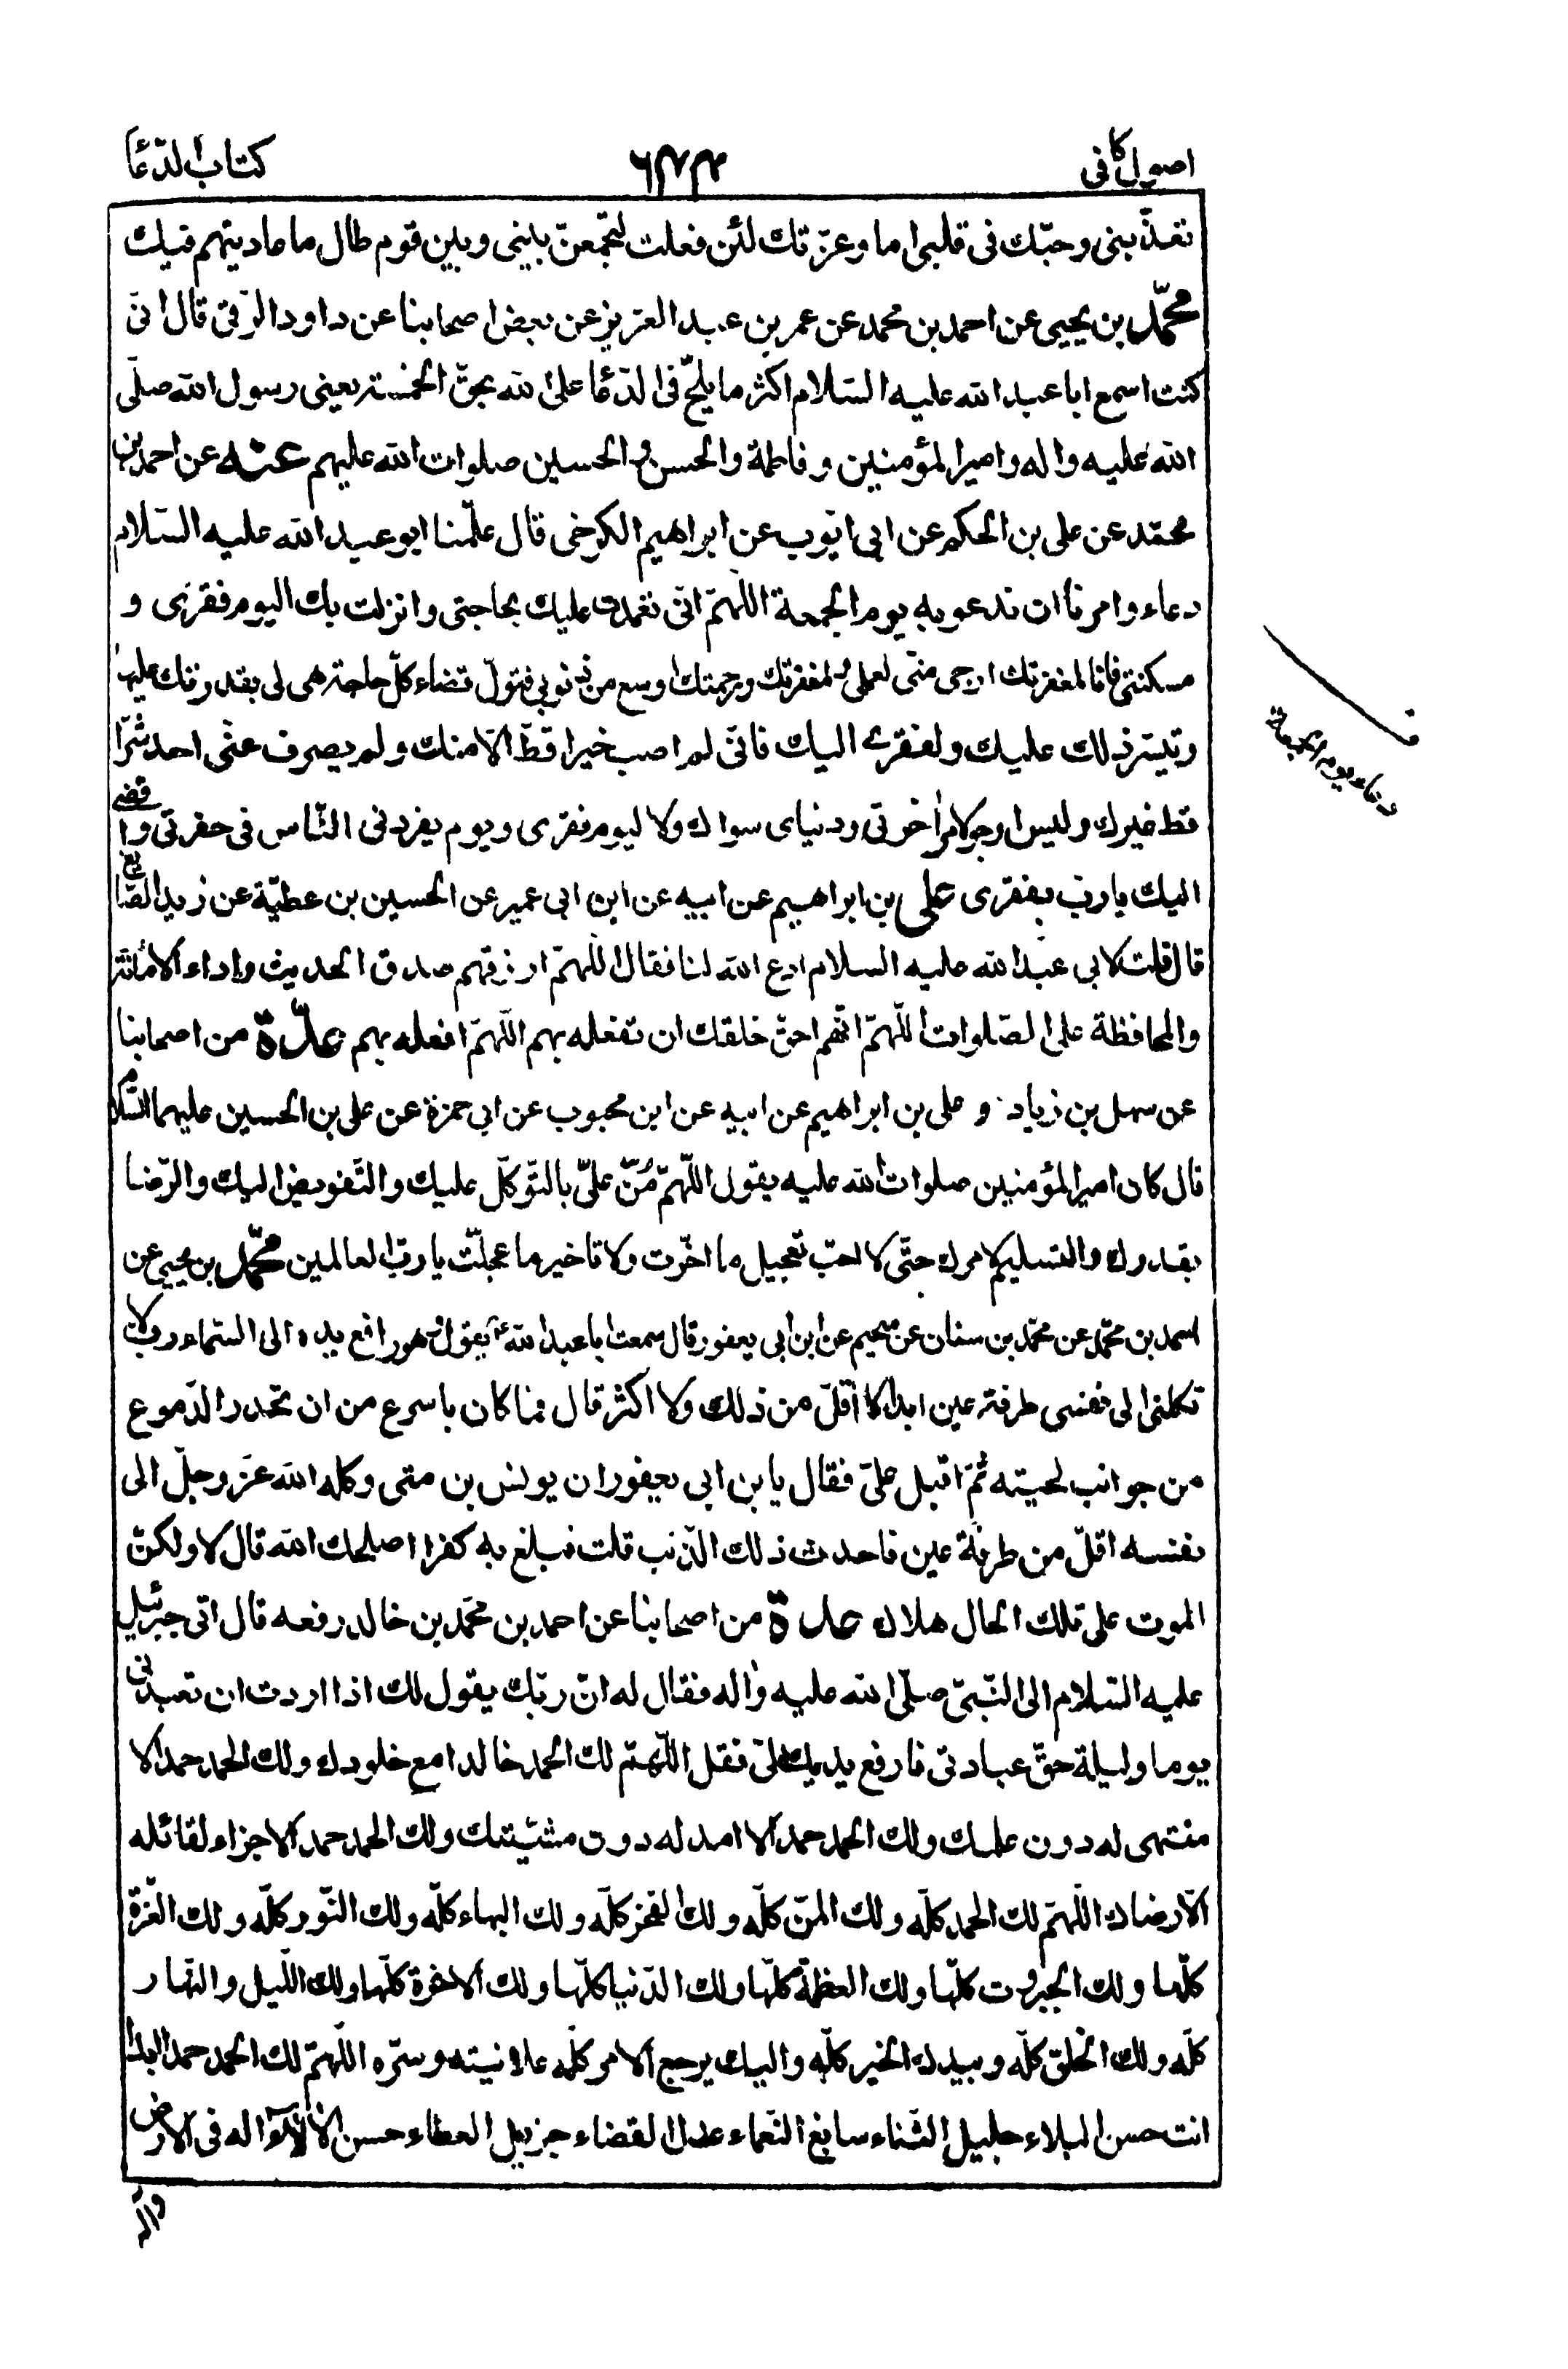 اصول كافى
٦٣٣
كتاب الدّعا
تعذّبنى وحبّك فى قلبى اما وعزّتك لئن فعلت لتجمعنّ بينى وبين قوم طال ما عاديتهم فيك
محمّد بن يحيى عن احمد بن محمد عن عمر بن عبد العزيز عن بعض اصحابنا عن داود الرّقى قال انّى
كنت اسمع ابا عبد الله عليه السّلام اكثر ما يلحّ فى الدّعا على الله بحقّ الخمسة يعنى رسول الله صلّى
الله عليه واله وامير المؤمنين وفاطمة والحسن والحسين صلوات الله عليهم عنه عن احمد بن
محمّد عن على بن الحكم عن ابى ايّوب عن ابراهيم الكرخى قال علّمنا ابو عبد الله عليه السّلام
دعاء وامرنا ان ندعو به يوم الجمعة اللّهمّ انّى تعمدت عليك بحاجتى وانزلت بك اليوم فقرى و
مسكنتى فانا لمغفرتك ارجى منّى لعملى ولمغفرتك ورحمتك اوسع من ذنوبى فتولّ قضاء كلّ حاجة هى لى بقدرتك عليها
وتيسّر ذلك عليك ولفقرى اليك فانّى لم اصب خيرا قطّ الّا منك ولم يصرف عنّى احد شرّا
قط غيرك وليس ارجو لامر اخرتى ودنياى سواك ولا ليوم فقرى ويوم يفردنى النّاس فى حفرتى وافضى
اليك يا ربّ بفقرى على بن ابراهيم عن ابيه عن ابن ابى عمير عن الحسين بن عطيّة عن زيد الصّايغ
قال قلت لابى عبد الله عليه السلام ادع الله لنا فقال اللّهمّ ارزقهم صدق الحديث واداء الامانة
والمحافظة على الصّلوات اللّهمّ انّهم احقّ خلقك ان تفعله بهم اللّهمّ افعله بهم عدّة من اصحابنا
عن سهل بن زياد و على بن ابراهيم عن ابيه عن ابن محبوب عن ابى حمزة عن على بن الحسين عليهما السّلام
قال كان امير المؤمنين صلوات الله عليه يقول اللّهمّ مُنّ علىّ بالتّوكّل عليك والتّفويض اليك والرّضا
بقدرك والتسليم لامرك حتّى لا احبّ تعجيل ما اخّرت ولا تاخير ما عجّلت يا ربّ العالمين محمّد بن يحيى عن
احمد بن محمّد عن محمّد بن سنان عن سحيم عن ابن ابى يعفور قال سمعت ابا عبد الله ع يقول وهو رافع يده الى السّماء ربّ لا
تكلنى الى نفسى طرفة عين ابدا لا اقلّ من ذلك ولا اكثر قال فما كان باسرع من ان تحدر الدّموع
من جوانب لحيته ثمّ اقبل علىّ فقال يا بن ابى يعفور ان يونس بن متى وكله الله عزّ وجلّ الى
نفسه اقلّ من طرفة عين فاحدث ذلك الذّنب قلت فبلغ به كفرا اصلحك الله قال لا ولكنّ
الموت على تلك الحال هلاك عدة من اصحابنا عن احمد بن محمّد بن خالد رفعه قال اتى جبرئيل
عليه السّلام الى النّبىّ صلّى الله عليه واله فقال له انّ ربّك يقول لك اذا اردت ان تعبدنى
يوما وليلة حقّ عبادتى فارفع يديك الىّ فقل اللّهمّ لك الحمد خالدا مع خلودك ولك الحمد حمدا لا
منتهى له دون علمك ولك الحمد حمدا لا امد له دون مشيّتك ولك الحمد حمدا لا جزاء لقائله
الّا رضاك اللّهمّ لك الحمد كلّه ولك المنّ كلّه ولك الفخر كلّه ولك البهاء كلّه ولك النّور كلّه ولك العّزة
كلّها ولك الجبروت كلّها ولك العظمة كلّها ولك الدّنيا كلّها ولك الاخرة كلّها ولك اللّيل والنّهار
كلّه ولك الخلق كلّه وبيدك الخير كلّه واليك يرجع الامر كلّه علانيته وسرّه اللّهمّ لك الحمد حمدا ابدا
انت حسن البلاء جليل الثّناء سابغ النّعماء عدل القضاء جزيل العطاء حسن الالاء اله فى الارض
واله
دعاء يوم الجمعة